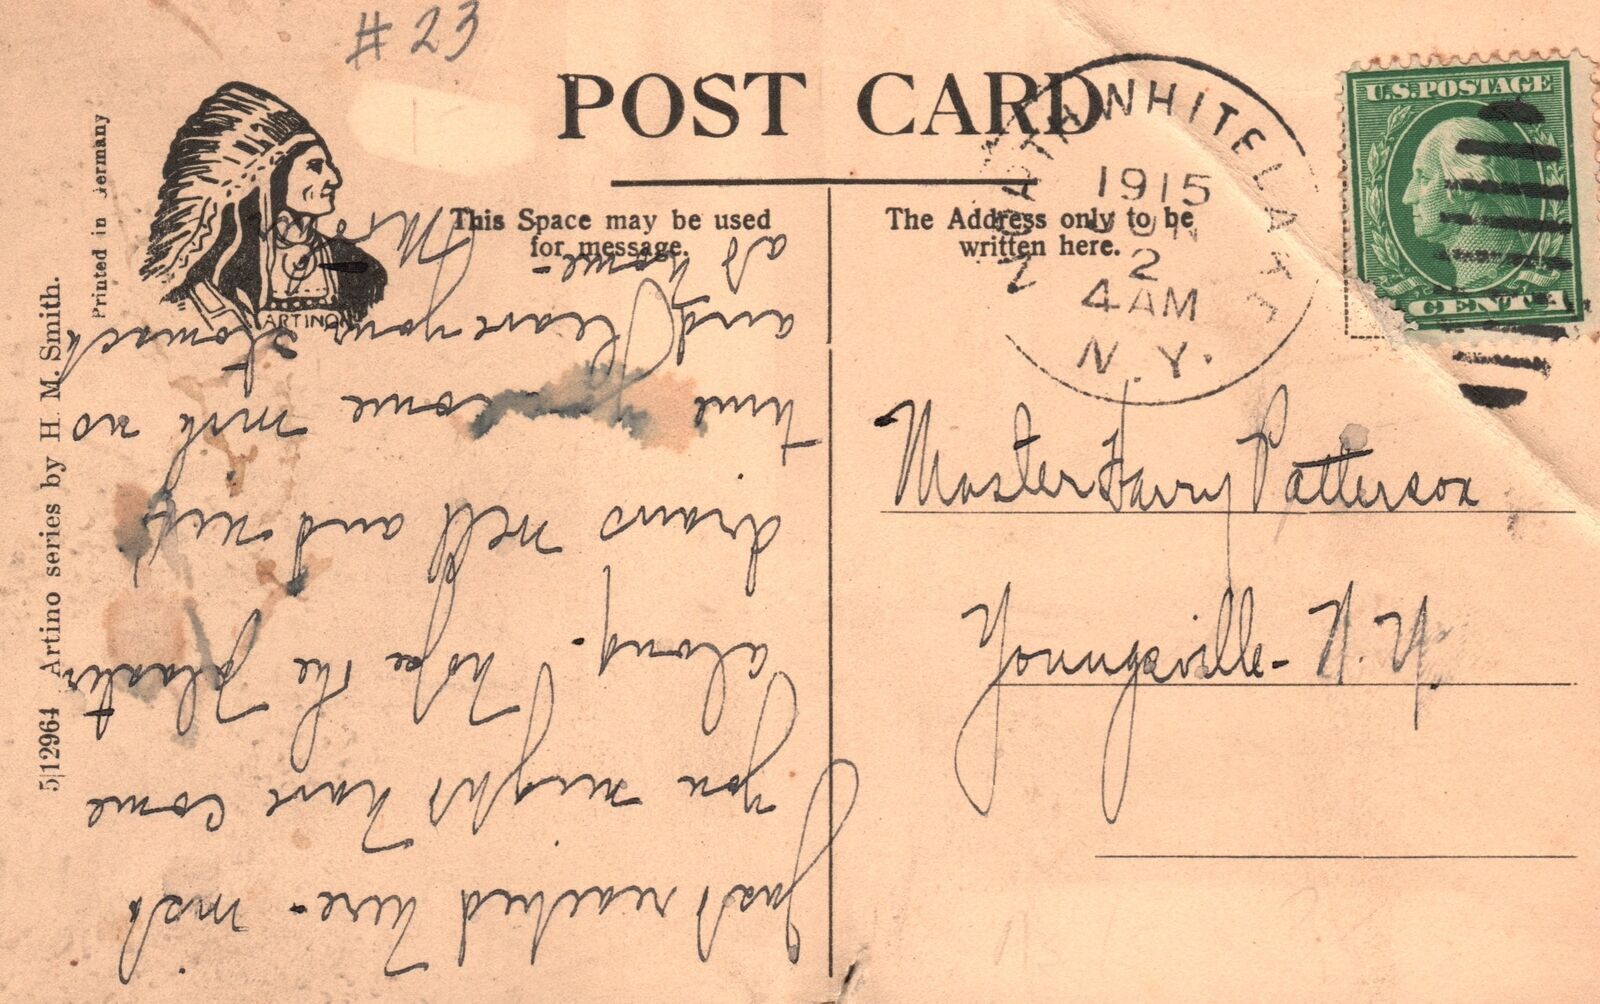 # 23
POST CARD
This Space may be used
for message.
The Address only to be
written here.
ARTINO
Printed in Germany
5|12964 Artino series by H. M. Smith.
WHITE LAKE
1915
JUN
2
4 AM
N.Y.
U.S. POSTAGE
CENT
Master Harry Patterson
Youngsville - N. Y.
Just reached here - wish
you might have come
along. hope the plaster
draws well and
time come with us
and leave your stomach
at home -